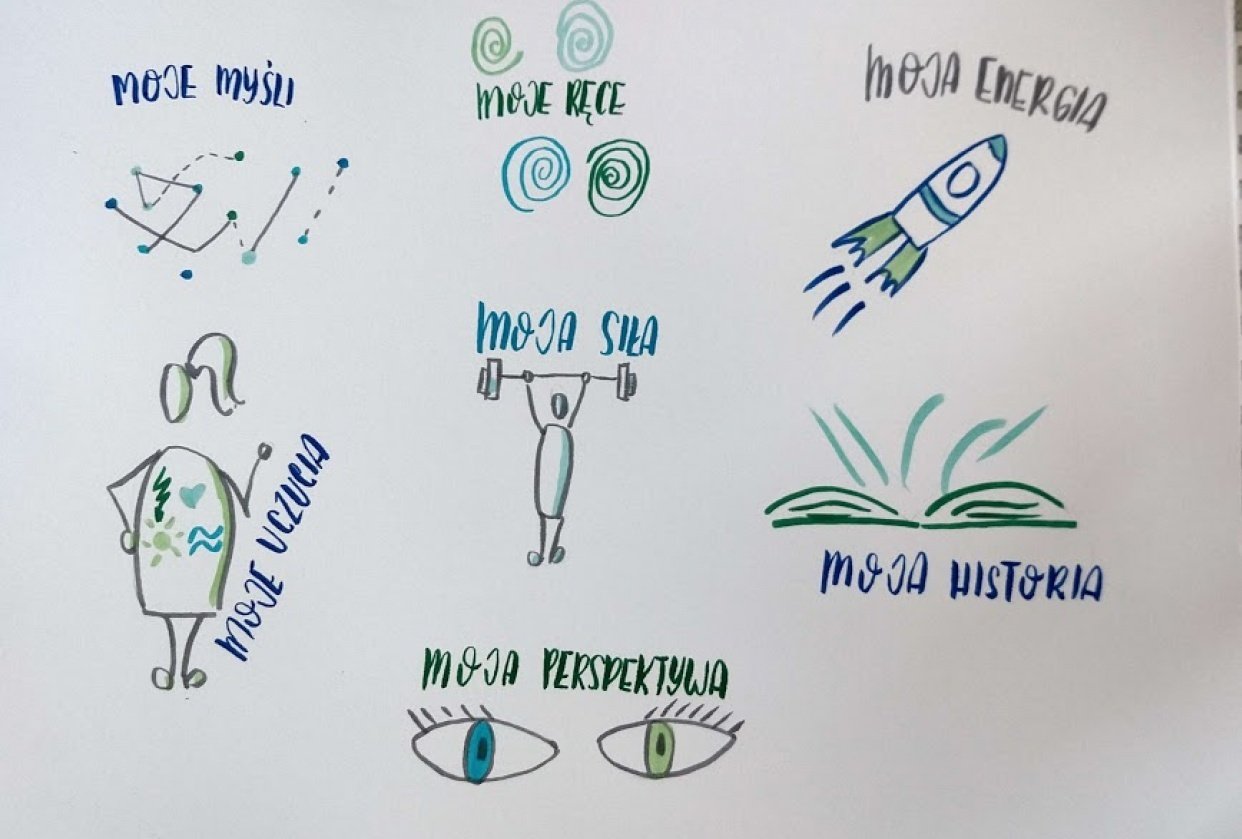 MOJE MYŚLI
MOJE RĘCE
MOJA ENERGIA
MOJA SIŁA
MOJE UCZUCIA
MOJA HISTORIA
MOJA PERSPEKTYWA